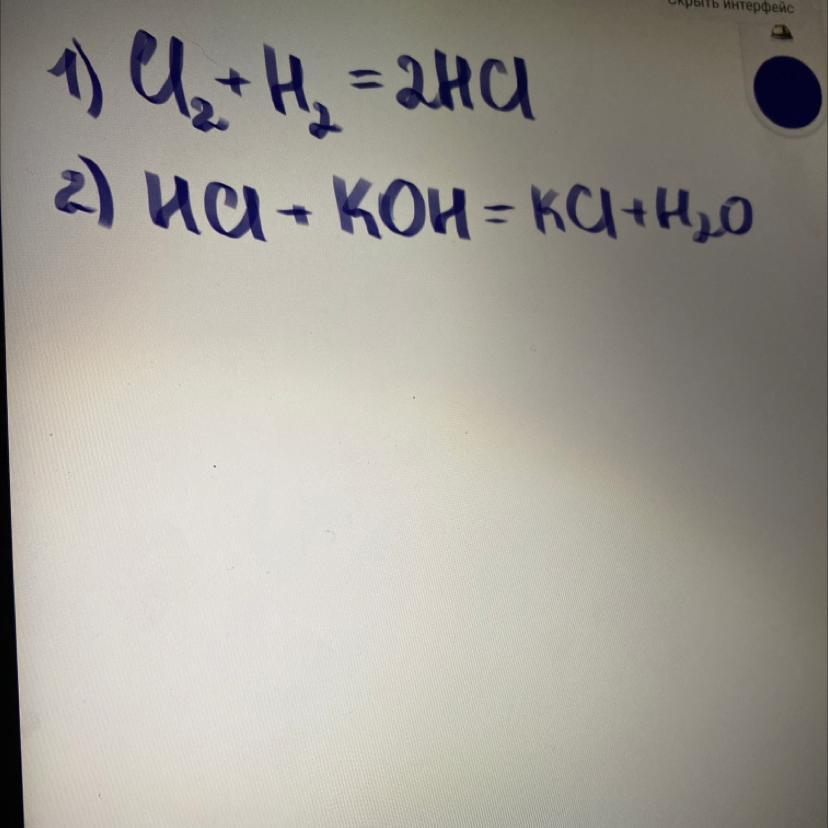 Скрыть интерфейс
1) Cl₂ + H₂ = 2HCl
2) HCl + KOH = KCl + H₂O